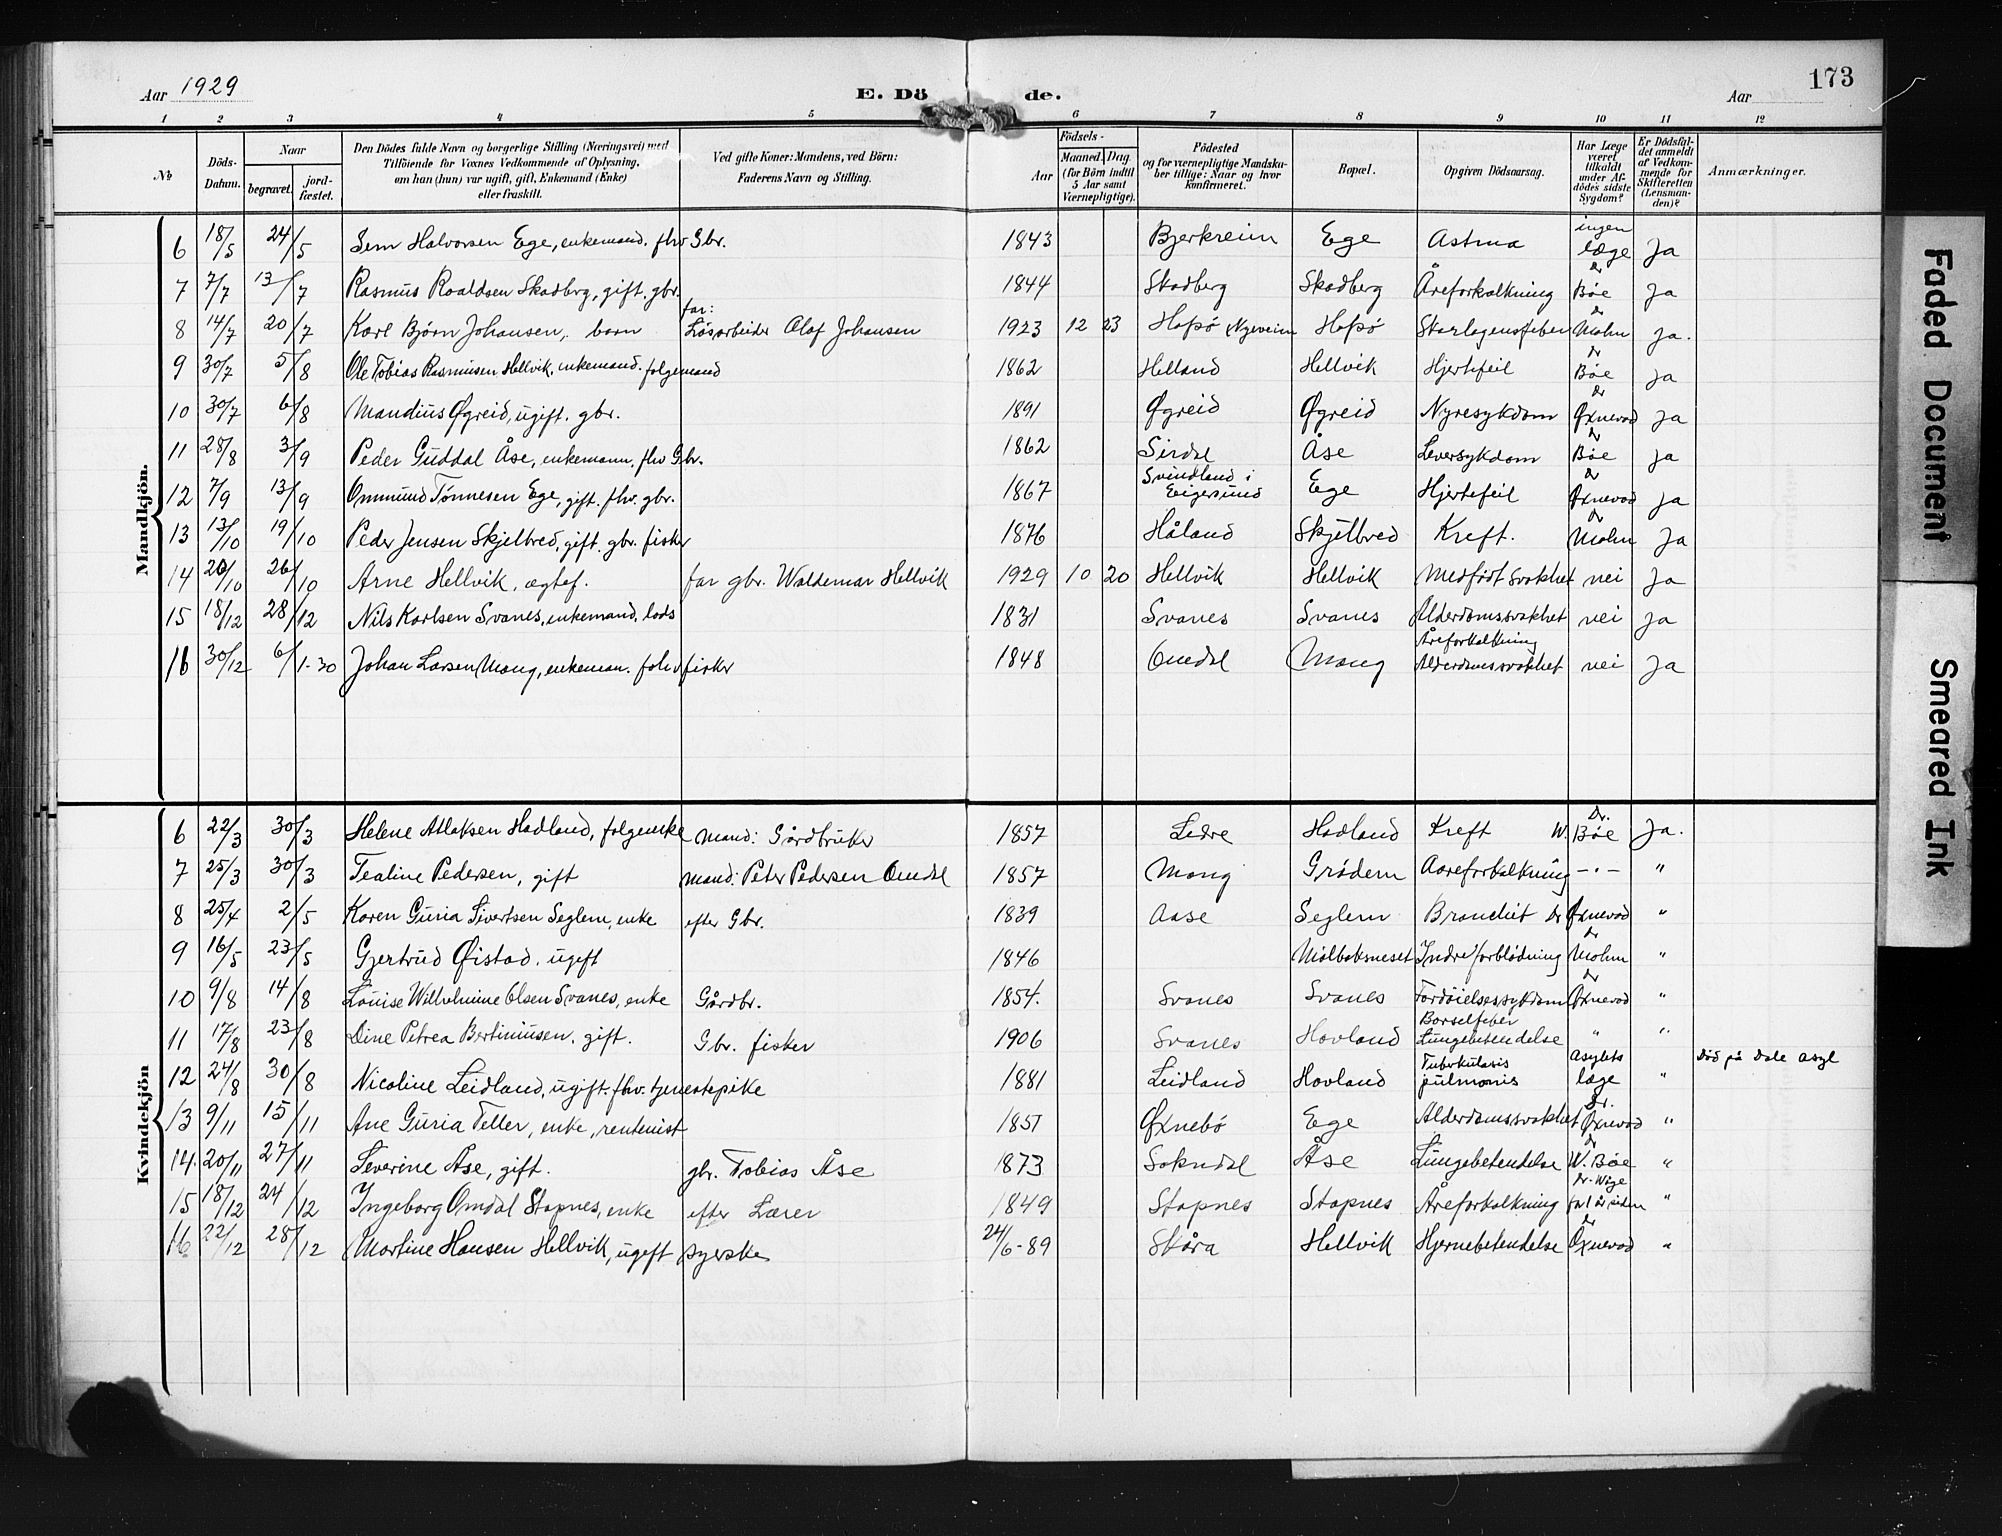 Aar 1929
E. Döde.
Aar
173
1 2 3 4 5 6 7 8 9 10 11 12
№
Döds-Datum.
Naar
begravet.
jord-fæstet.
Den Dödes fulde Navn og borgerlige Stilling (Næringsvei) med
Tilföiende for Voxnes Vedkommende af Oplysning,
om han (hun) var ugift, gift, Enkemand (Enke)
eller fraskilt.
Ved gifte Koner: Mandens, ved Börn:
Faderens Navn og Stilling.
Födsels-
Aar
Maaned. Dag.
(for Börn indtil 5 Aar samt Værnepligtige).
Födested
og for værnepligtige Mandska-
ber tillige: Naar og hvor
konfirmeret.
Bopæl.
Opgiven Dödsaarsag.
Har Læge været tilkaldt under Af-dödes sidste Sygdom?
Er Dödsfal-det anmeldt af Vedkom-mende for Skifteretten (Lensman-den)?
Anmærkninger.
Mandkjön.
6 18/5 24/5 Sem Halvorsen Ege, enkemand. fhv Gbr. 1843 Bjerkreim Ege Astma ingen læge Ja
7 7/7 13/7 Rasmus Roaldsen Skadberg, gift. gbr. 1844 Skadberg Skadberg Åreforkalkning Dr Bøe Ja
8 14/7 20/7 Karl Bjørn Johansen, barn far: Løsarbeider Olaf Johansen 1923 12 23 Hafsø Nyeveien Hafsø Skarlagensfeber Dr Mohn Ja.
9 30/7 5/8 Ole Tobias Rasmusen Hellvik, enkemand. folgemand 1862 Helland Hellvik Hjertefeil Dr Bøe Ja
10 30/7 6/8 Mandius Øgreid, ugift. gbr. 1891 Øgreid Øgreid Nyresykdom Dr Øxnevad Ja
11 28/8 3/9 Peder Guddal Åse, enkemann, fhv Gbr. 1862 Sirdal Åse Leversykdom Dr Bøe Ja
12 7/9 13/9 Ommund Tønnesen Ege, gift. fhv. gbr. 1867 Svindland i Eigersund Ege Hjertefeil Dr Øxnevad Ja
13 13/10 19/10 Peder Jensen Skjelbred, gift. gbr. fisker 1876 Håland Skjelbred Kreft. Dr Mohn Ja
14 20/10 26/10 Arne Hellvik, ægtef. far gbr. Waldemar Hellvik 1929 10 20 Hellvik Hellvik Medfødt svakhet nei Ja
15 18/12 28/12 Nils Karlsen Svanes, enkemand, lods 1831 Svanes Svanes Alderdomssvakhet nei Ja
16 30/12 6/1-30 Johan Larsen Mong, enkeman. fohv fisker 1848 Omdal Mong Åreforkalkning Alderdomssvakhet nei Ja
Kvindekjön
6 22/3 30/3 Helene Atlaksen Hadland, folgeenke Mand: Gårdbruker 1857 Ledre Hadland Kreft Dr. W. Bøe Ja.
7 25/3 30/3 Tealine Pedersen, gift mand: Peter Pedersen Omdal 1857 Mong Grødem Aareforkalkning -"- "
8 25/4 2/5 Karen Guria Sivertsen Seglem, enke efter Gbr. 1839 Aase Seglem Bronchit Dr Øxnevad "
9 16/5 23/5 Gjertrud Øistad. ugift 1846 Mølbaksneset Indre forblødning Dr Mohn "
10 9/8 14/8 Louise Wilhelmine Olsen Svanes, enke Gårdbr. 1854. Svanes Svanes Fordøielsessykdom Dr Øxnevad "
11 17/8 23/8 Dine Petrea Bertiniusen. gift. Gbr. fisker 1906 Svanes Hovland Barselfeber Lungebetendelse " "
12 24/8 30/8 Nicoline Leidland, ugift. fhv. tjenestepike 1881 Leidland Hovland Tuberkulosis pulmonis Asylets læge " Død på Dale asyl
13 9/11 15/11 Ane Guria Teller, enke, rentenist 1851 Øxnebø Ege Alderdomssvakhet Dr. Øxnevad "
14. 20/11 27/11 Severine Åse, gift. gbr. Tobias Åse 1873 Sokndal Åse Lungebetendelse Dr W. Bøe "
15 18/12 24/12 Ingeborg Omdal Stapnes, enke efter Lærer 1849 Stapnes Stapnes Åreforkalkning Dr. Wåge for 1 år siden "
16 22/12 28/12 Martine Hansen Hellvik, ugift syerske 24/6-89 Skåra Hellvik Hjernebetendelse Dr Øxnevad "
Faded Document
Smeared Ink